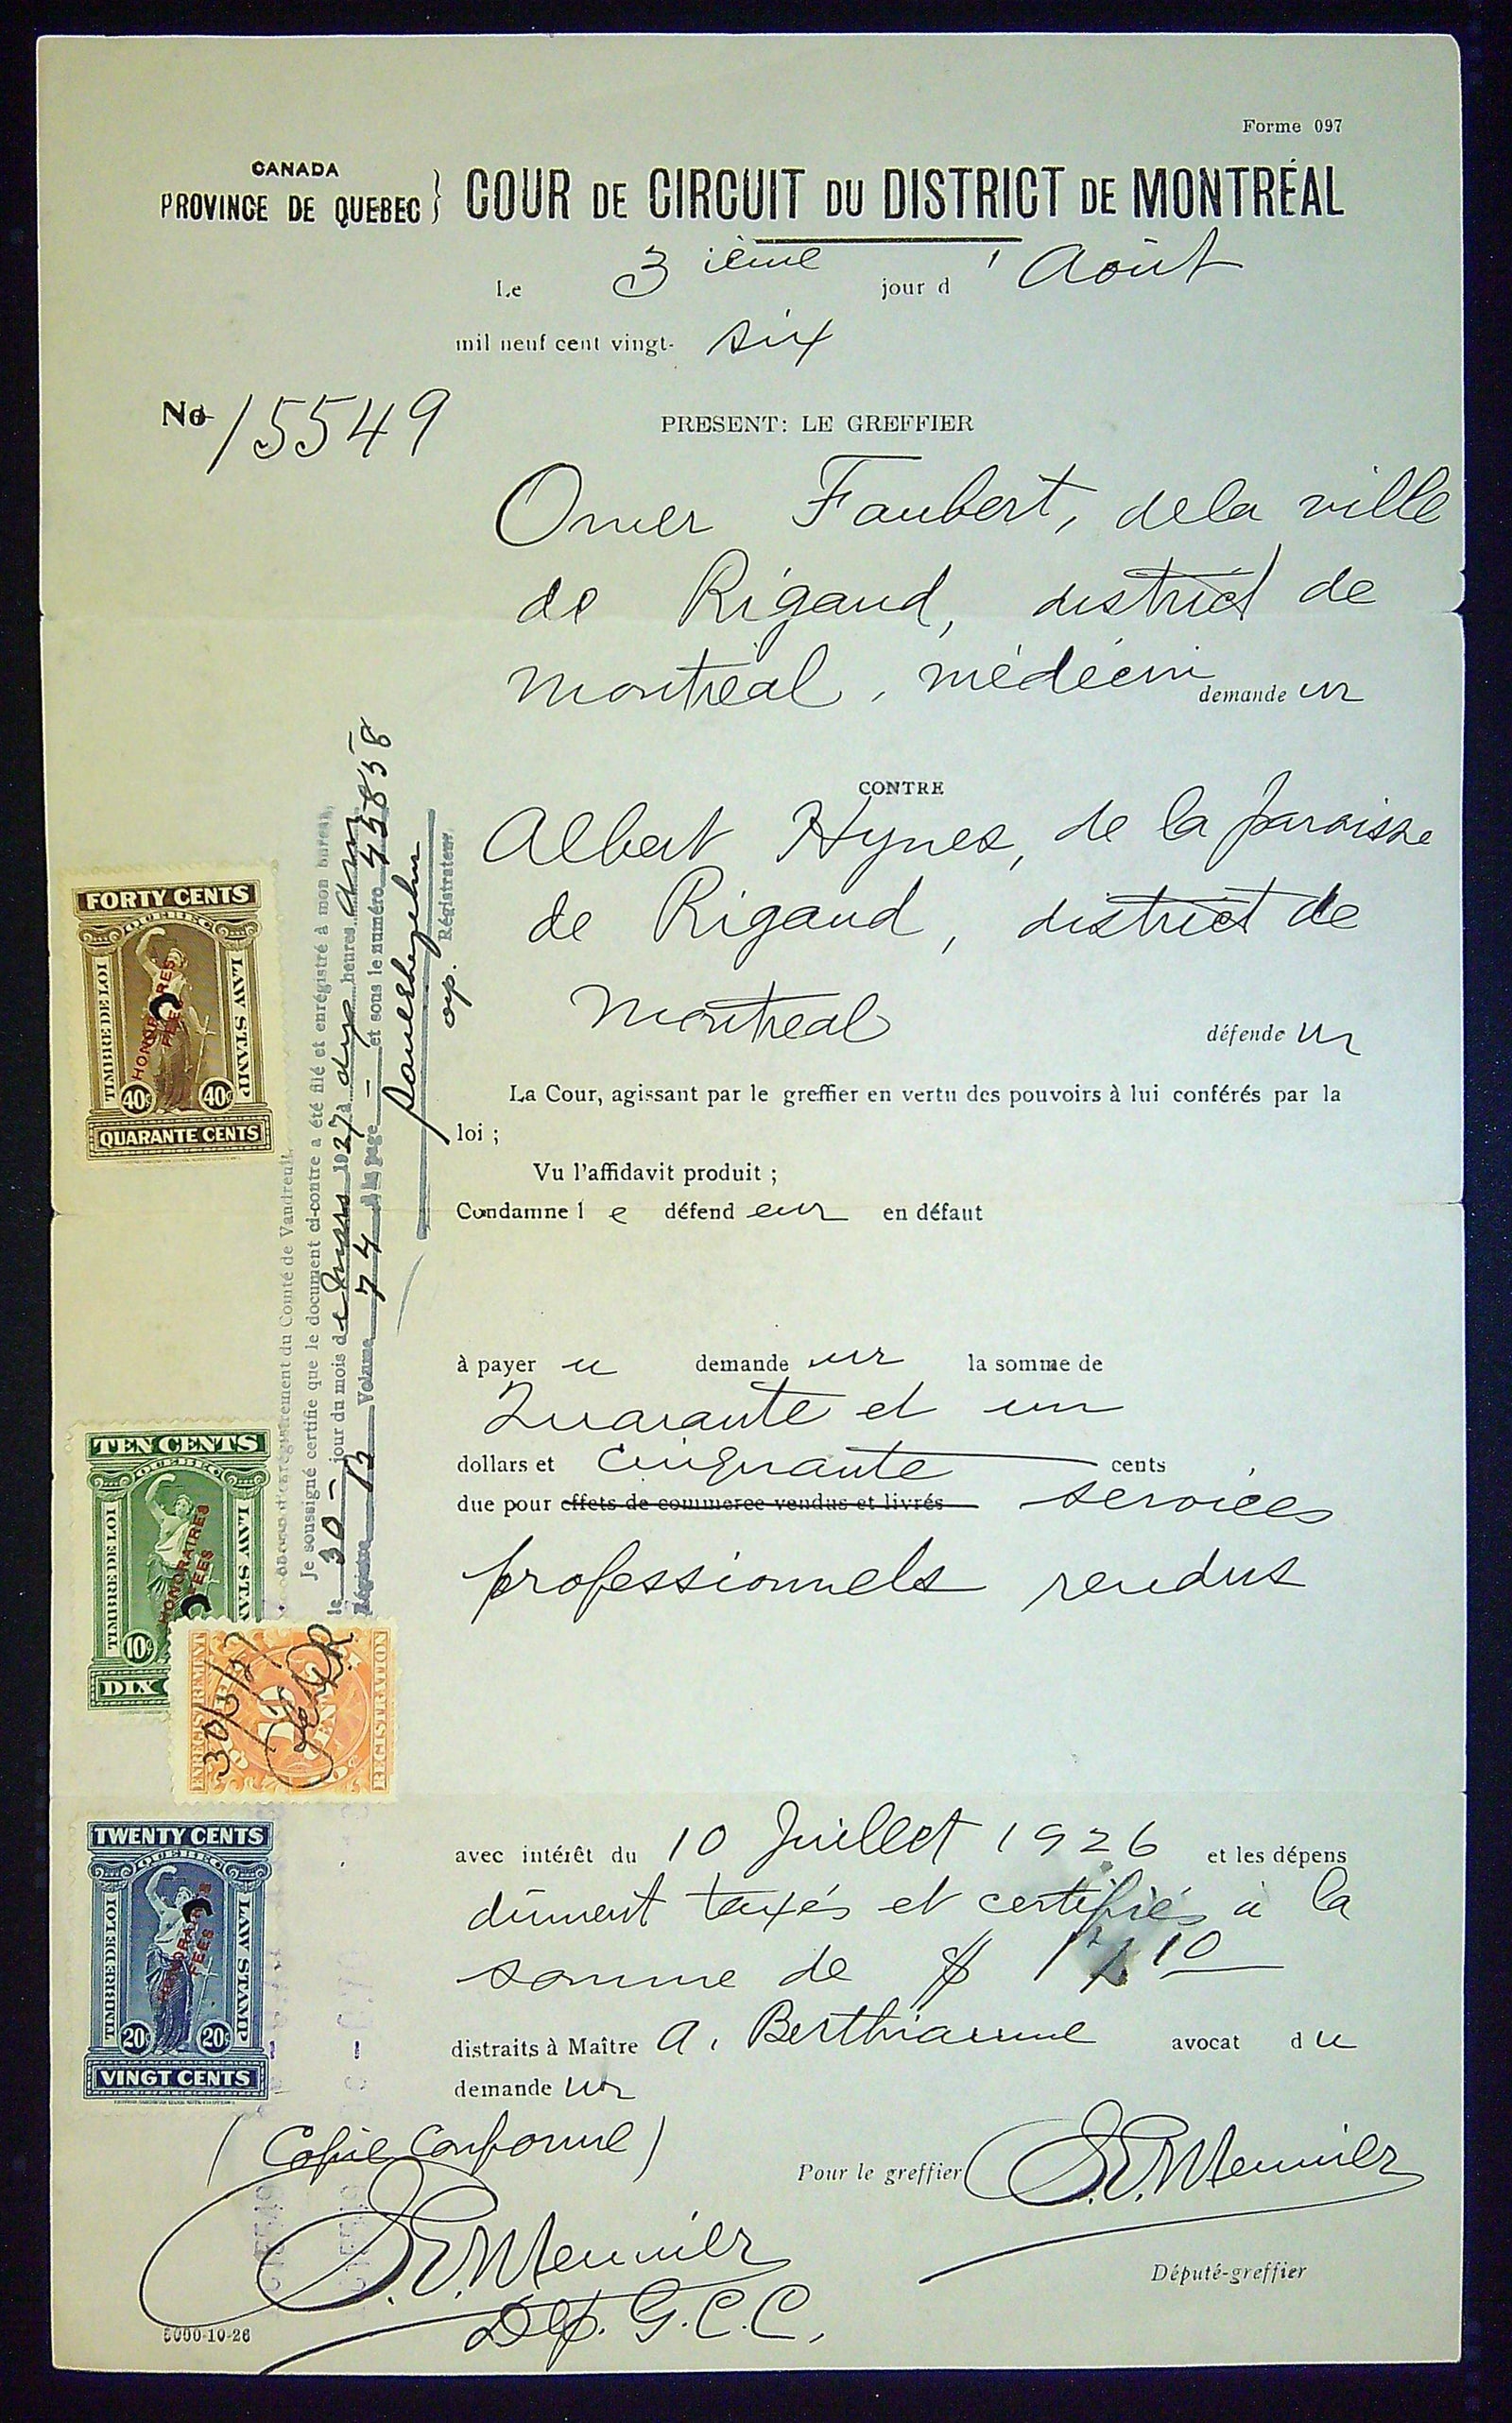 Forme 097
CANADA
PROVINCE DE QUEBEC } COUR DE CIRCUIT DU DISTRICT DE MONTRÉAL
Le 3 ième jour d' Août
mil neuf cent vingt- six
No 15549
PRESENT: LE GREFFIER
Omer Faubert, de la ville
de Rigaud, district de
Montréal, médecin demande ur
CONTRE
Albert Hynes, de la paroisse
de Rigaud, district de
Montreal défende ur
La Cour, agissant par le greffier en vertu des pouvoirs à lui conférés par la
loi ;
Vu l'affidavit produit ;
Condamne l e défend eur en défaut
à payer u demande ur la somme de
Quarante et un
dollars et Cinquante cents
due pour effets de commerce vendus et livrés services
professionnels rendus
avec intérêt du 10 Juillet 1926 et les dépens
dûment taxés et certifiés à la
somme de $ 10
distraits à Maître A. Berthiaume avocat d u
demande ur
(Copie Conforme)
Pour le greffier S.E. Meunier
Député-greffier
S.E. Meunier
Dép. G.C.C.
5000-10-26
enregistrement du Comté de Vaudreuil
Je soussigné certifie que le document ci-contre a été filé et enrégistré à mon bureau,
le 30 - jour du mois de Mars 1927 à dix heures, A.M.
Régistre B Volume 74 à la page - et sous le numéro
Régistrateur.
FORTY CENTS
QUEBEC
TIMBRE DE LOI
LAW STAMP
HONORAIRES
FEES
40c 40c
QUARANTE CENTS
TEN CENTS
QUEBEC
TIMBRE DE LOI
LAW STAM
HONORAIRES
FEES
10c
DIX
30/3/27
ENREGISTREMENT
REGISTRATION
TWENTY CENTS
QUEBEC
TIMBRE DE LOI
LAW STAMP
HONORAIRES
FEES
20c 20c
VINGT CENTS